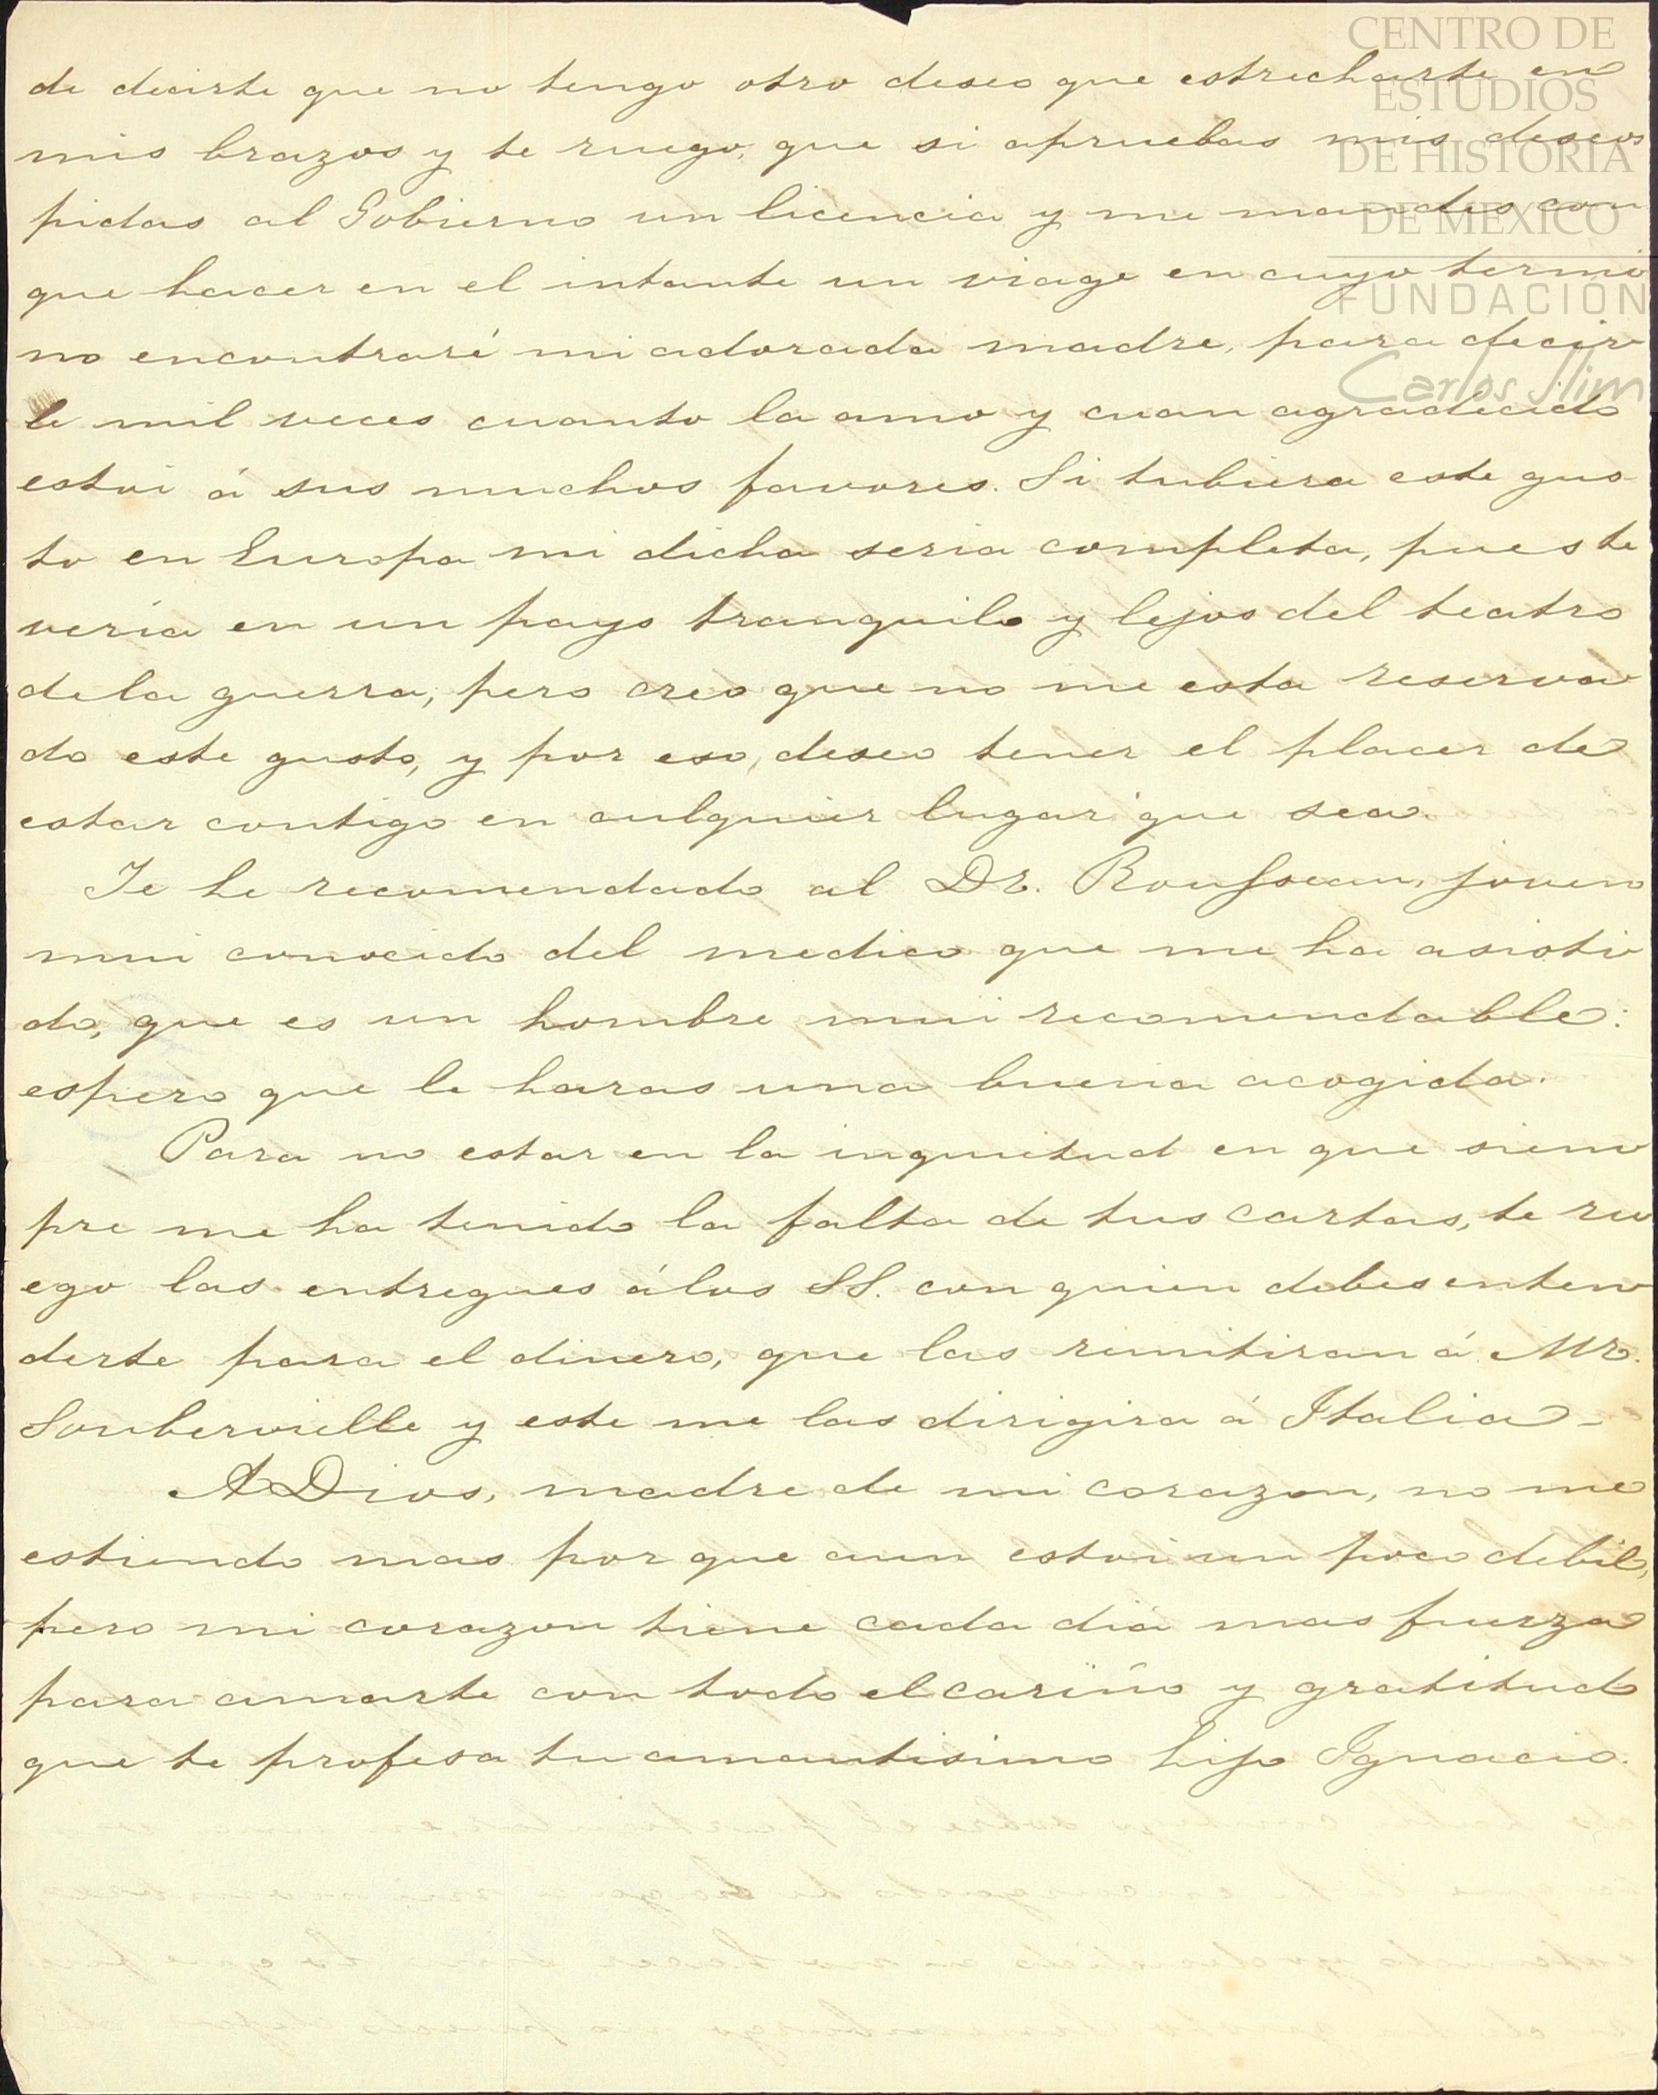 CENTRO DE
ESTUDIOS
DE HISTORIA
DE MEXICO
FUNDACIÓN
Carlos Slim
de decirte que no tengo otro deseo que estrecharte en
mis brazos y te ruego, que si apruebas mis deseos
pidas al Gobierno un licencia y me mandes con
que hacer en el intante un viage en cuyo termi
no encontraré mi adorada madre, para decir
le mil veces cuanto la amo y cuan agradecido
estoi á sus muchos favores. Si tubiera este gus
to en Europa mi dicha seria completa, pues te
vería en un pays tranquilo y lejos del teatro
de la guerra, pero creo que no me esta reserva
do este gusto, y por eso, deseo tener el placer de
estar contigo en culquier lugar que sea.
Te he recomendado al Dr. Rousseau, joven
mui conocido del medico que me ha asisti
do, que es un hombre mui recomendable:
espero que le haras una buena acogida.
Para no estar en la inquitud en que siem
pre me ha tenido la falta de tus cartas, te ru
ego las entregues á los SS. con quien debes enten
derte para el dinero, que las remitiran á Mr.
Soubervielle y este me las dirigira á Italia-
A Dios, madre de mi corazon, no me
estiendo mas por que aun estoi un poco debil,
pero mi corazon tiene cada dia mas fuerza
para amarte con todo el cariño y gratitud
que te profesa tu amantisimo hijo Ignacio.